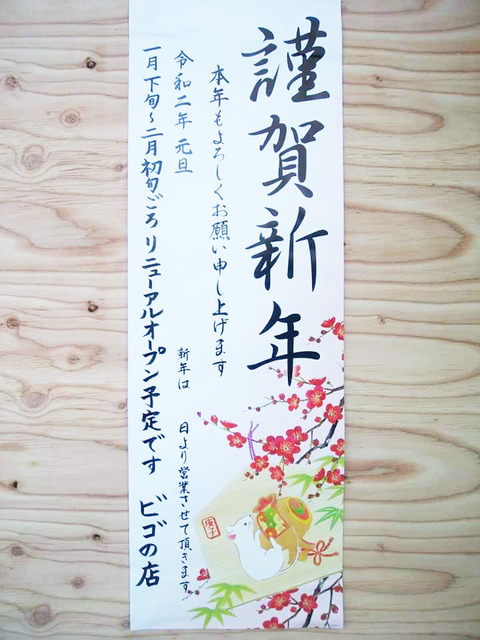 謹賀新年
本年もよろしくお願い申し上げます
令和二年 元旦
新年は 日より営業させて頂きます
一月下旬～二月初旬ごろ リニューアルオープン予定です
ビゴの店
庚子